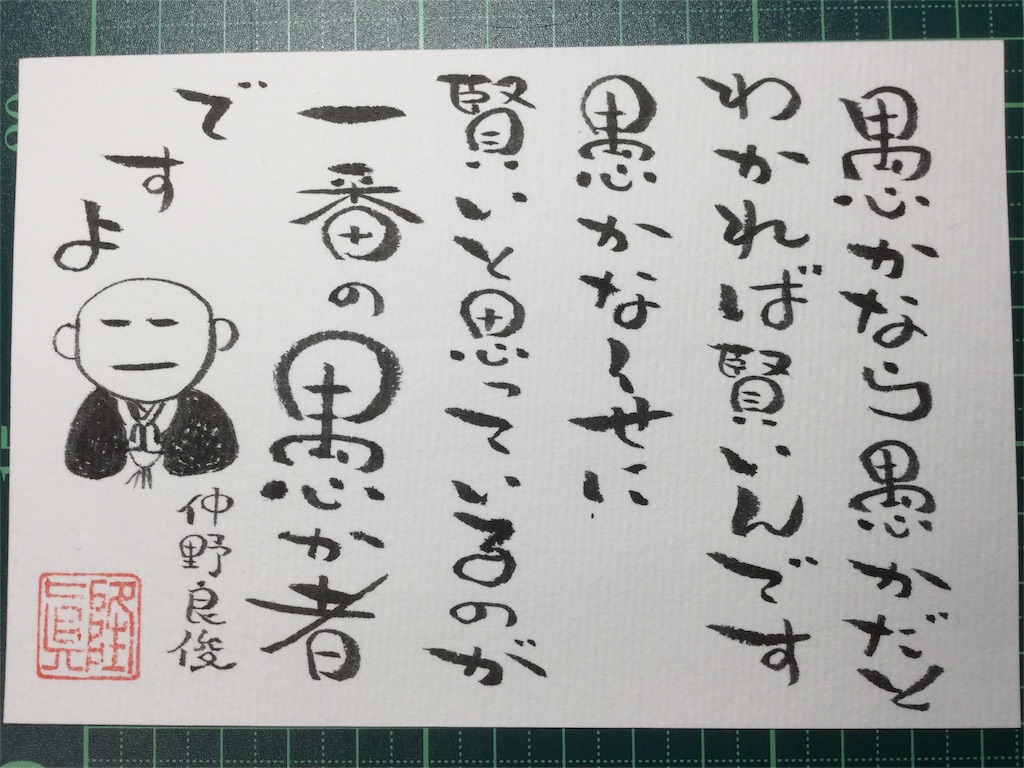 愚かなら愚かだと
わかれば賢いんです
愚かなくせに
賢いと思っているのが
一番の愚か者
ですよ
仲野良俊